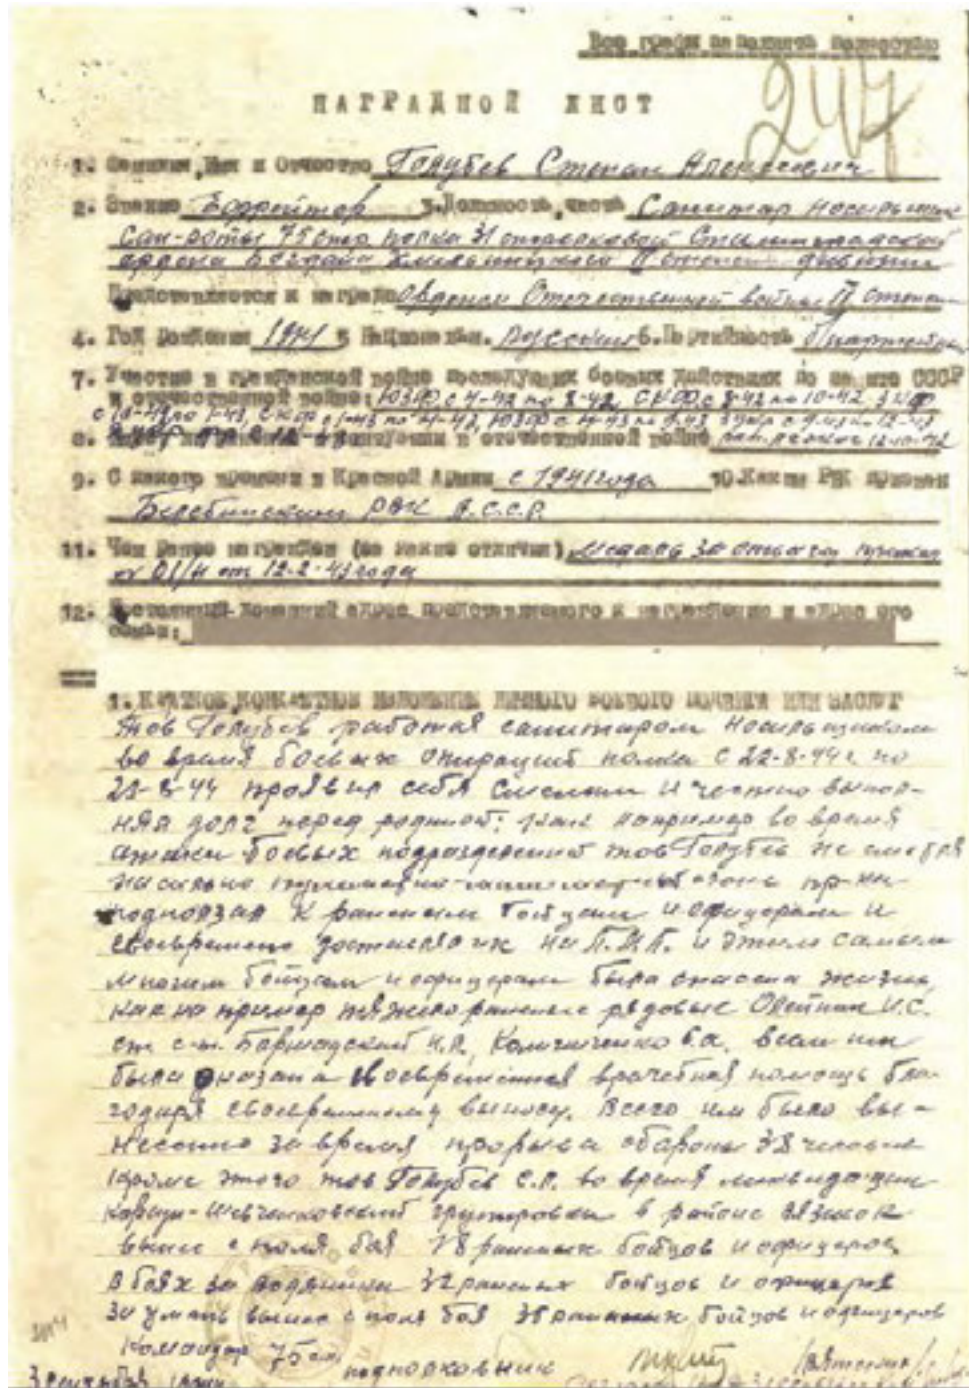 Все графы заполнять полностью
247
НАГРАДНОЙ ЛИСТ
1. Фамилия, Имя и Отчество Голубев Степан Алексеевич
2. Звание Ефрейтор 3. Должность, часть Санитар носильщик
Сан-роты 75 стр полка 31 стрелковой Сталинградской
ордена Богдана Хмельницкого II степени дивизии
Представляется к награде орденом Отечественной войны II степени
4. Год рождения 5 Национальн. Русский 6. Партийность
7. Участие в гражданской войне последующих боевых действиях по защите СССР
и отечественной войне: ЮЗФ с 4-42 по 8-42, СКФ с 8-42 по 10-42 ЗКФ
с 10-42 по 1-43, СКФ с 1-43 по 4-43, ЮЗФ с 4-43 по 9.43 3 Укр с 9.43 по 12-43
8. в отечественной войне 12-10-42
9. С какого времени в Красной Армии с 1941 года 10. Каким РВК призван
РВК
11. Чем ранее награжден (за какие отличия) медаль За отвагу приказ
№ 01/н от 12-2-43 года
12. Постоянный домашний адрес представляемого к награждению и адрес его
семьи:
1. КРАТКОЕ, КОНКРЕТНОЕ ИЗЛОЖЕНИЕ ЛИЧНОГО БОЕВОГО ПОДВИГА ИЛИ ЗАСЛУГ
Тов Голубев работая санитаром носильщиком
во время боевых операций полка с 22-8-44 г. по
23-8-44 проявил себя смелым и честно выпол-
няя долг перед родиной: так например во время
атаки боевых подразделений тов Голубев не смотря
на сильно огонь пр-ка
подползал к раненым бойцам и офицерам и
своевременно доставлял их на П.М.П. и этим самым
многим бойцам и офицерам была спасена жизнь,
как на пример тяжело раненые рядовые Олейник И.С.
ст. с-т. всем им
была оказана своевременная врачебная помощь бла-
годаря своевременному выносу. Всего им было вы-
несено за время прорыва обороны 38 человек
Кроме этого тов Голубев С.А. во время ликвидации
Корсун-Шевченковской группировки в районе
вынес с поля боя 78 раненых бойцов и офицеров
В боях за 32 раненых бойцов и офицеров
За Умань вынес с поля боя раненых бойцов и офицеров
Командир 75 сп
подполковник
3 сентября